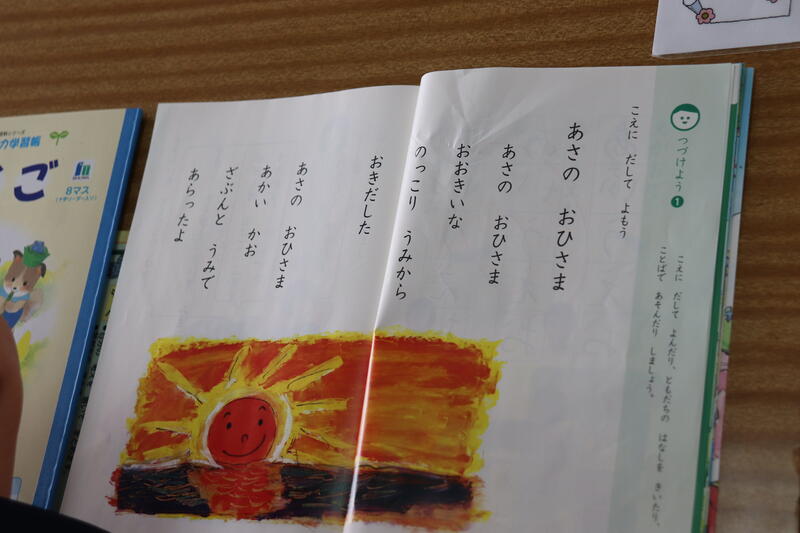 つづけよう❶
こえに だして よんだり、ともだちの はなしを きいたり、
ことばで あそんだり しましょう。
こえに だして よもう
あさの おひさま
あさの おひさま
おおきいな
のっこり うみから
おきだした
あさの おひさま
あかい かお
ざぶんと うみで
あらったよ
学習帳
ご
8マス